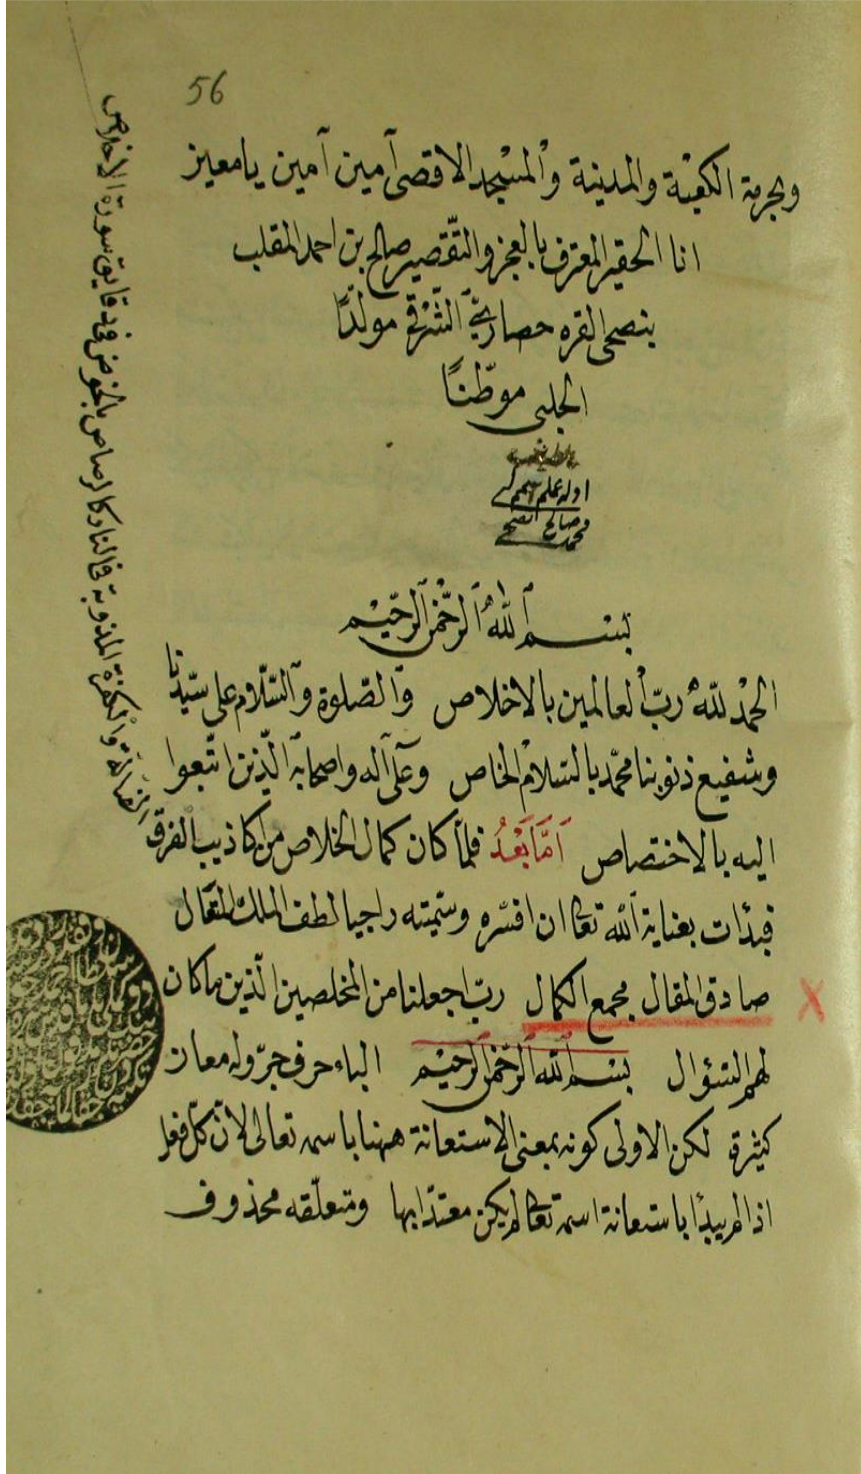 56
وبحرمة الكعبة والمدينة والمسجد الاقصى آمين آمين يا معين
انا الحقير المعترف بالعجز والتقصير صالح بن احمد الملقب
بنصحى القره حصاريّ الشرقى مولدًا
الجلبى موطّنًا
محمد صالح نصحى
بسم الله الرحمن الرحيم
الحمد لله ربّ العالمين بالاخلاص والصّلوة والسّلام على سيّدنا
وشفيع ذنوبنا محمّد بالسّلام الخاص وعلى آله واصحابه الّذين اتّبعوا
اليه بالاختصاص امّا بَعْدُ فلمّا كان كمال الخلاص من اكاذيب الفرق
الضالّة والكفرة المذوبة فى النار كالرصاص بالخوض فى دقايق سورة الاخلاص
فبدات بعناية الله تعا ان افسّره وسمّيته راجيا لطف الملك المتعال
صادق المقال مجمع الكمال ربّ اجعلنا من المخلصين الّذين ما كان
لهم السّؤال بسم الله الرحمن الرحيم الباء حرف جرّ وله معان
كثيرة لكن الاولى كونه بمعنى الاستعانة ههنا باسمه تعالى لانّ كلّ فعل
اذا لم يبدأ باستعانة اسمه تعا لم يكن معتدّا بها ومتعلّقه محذوف